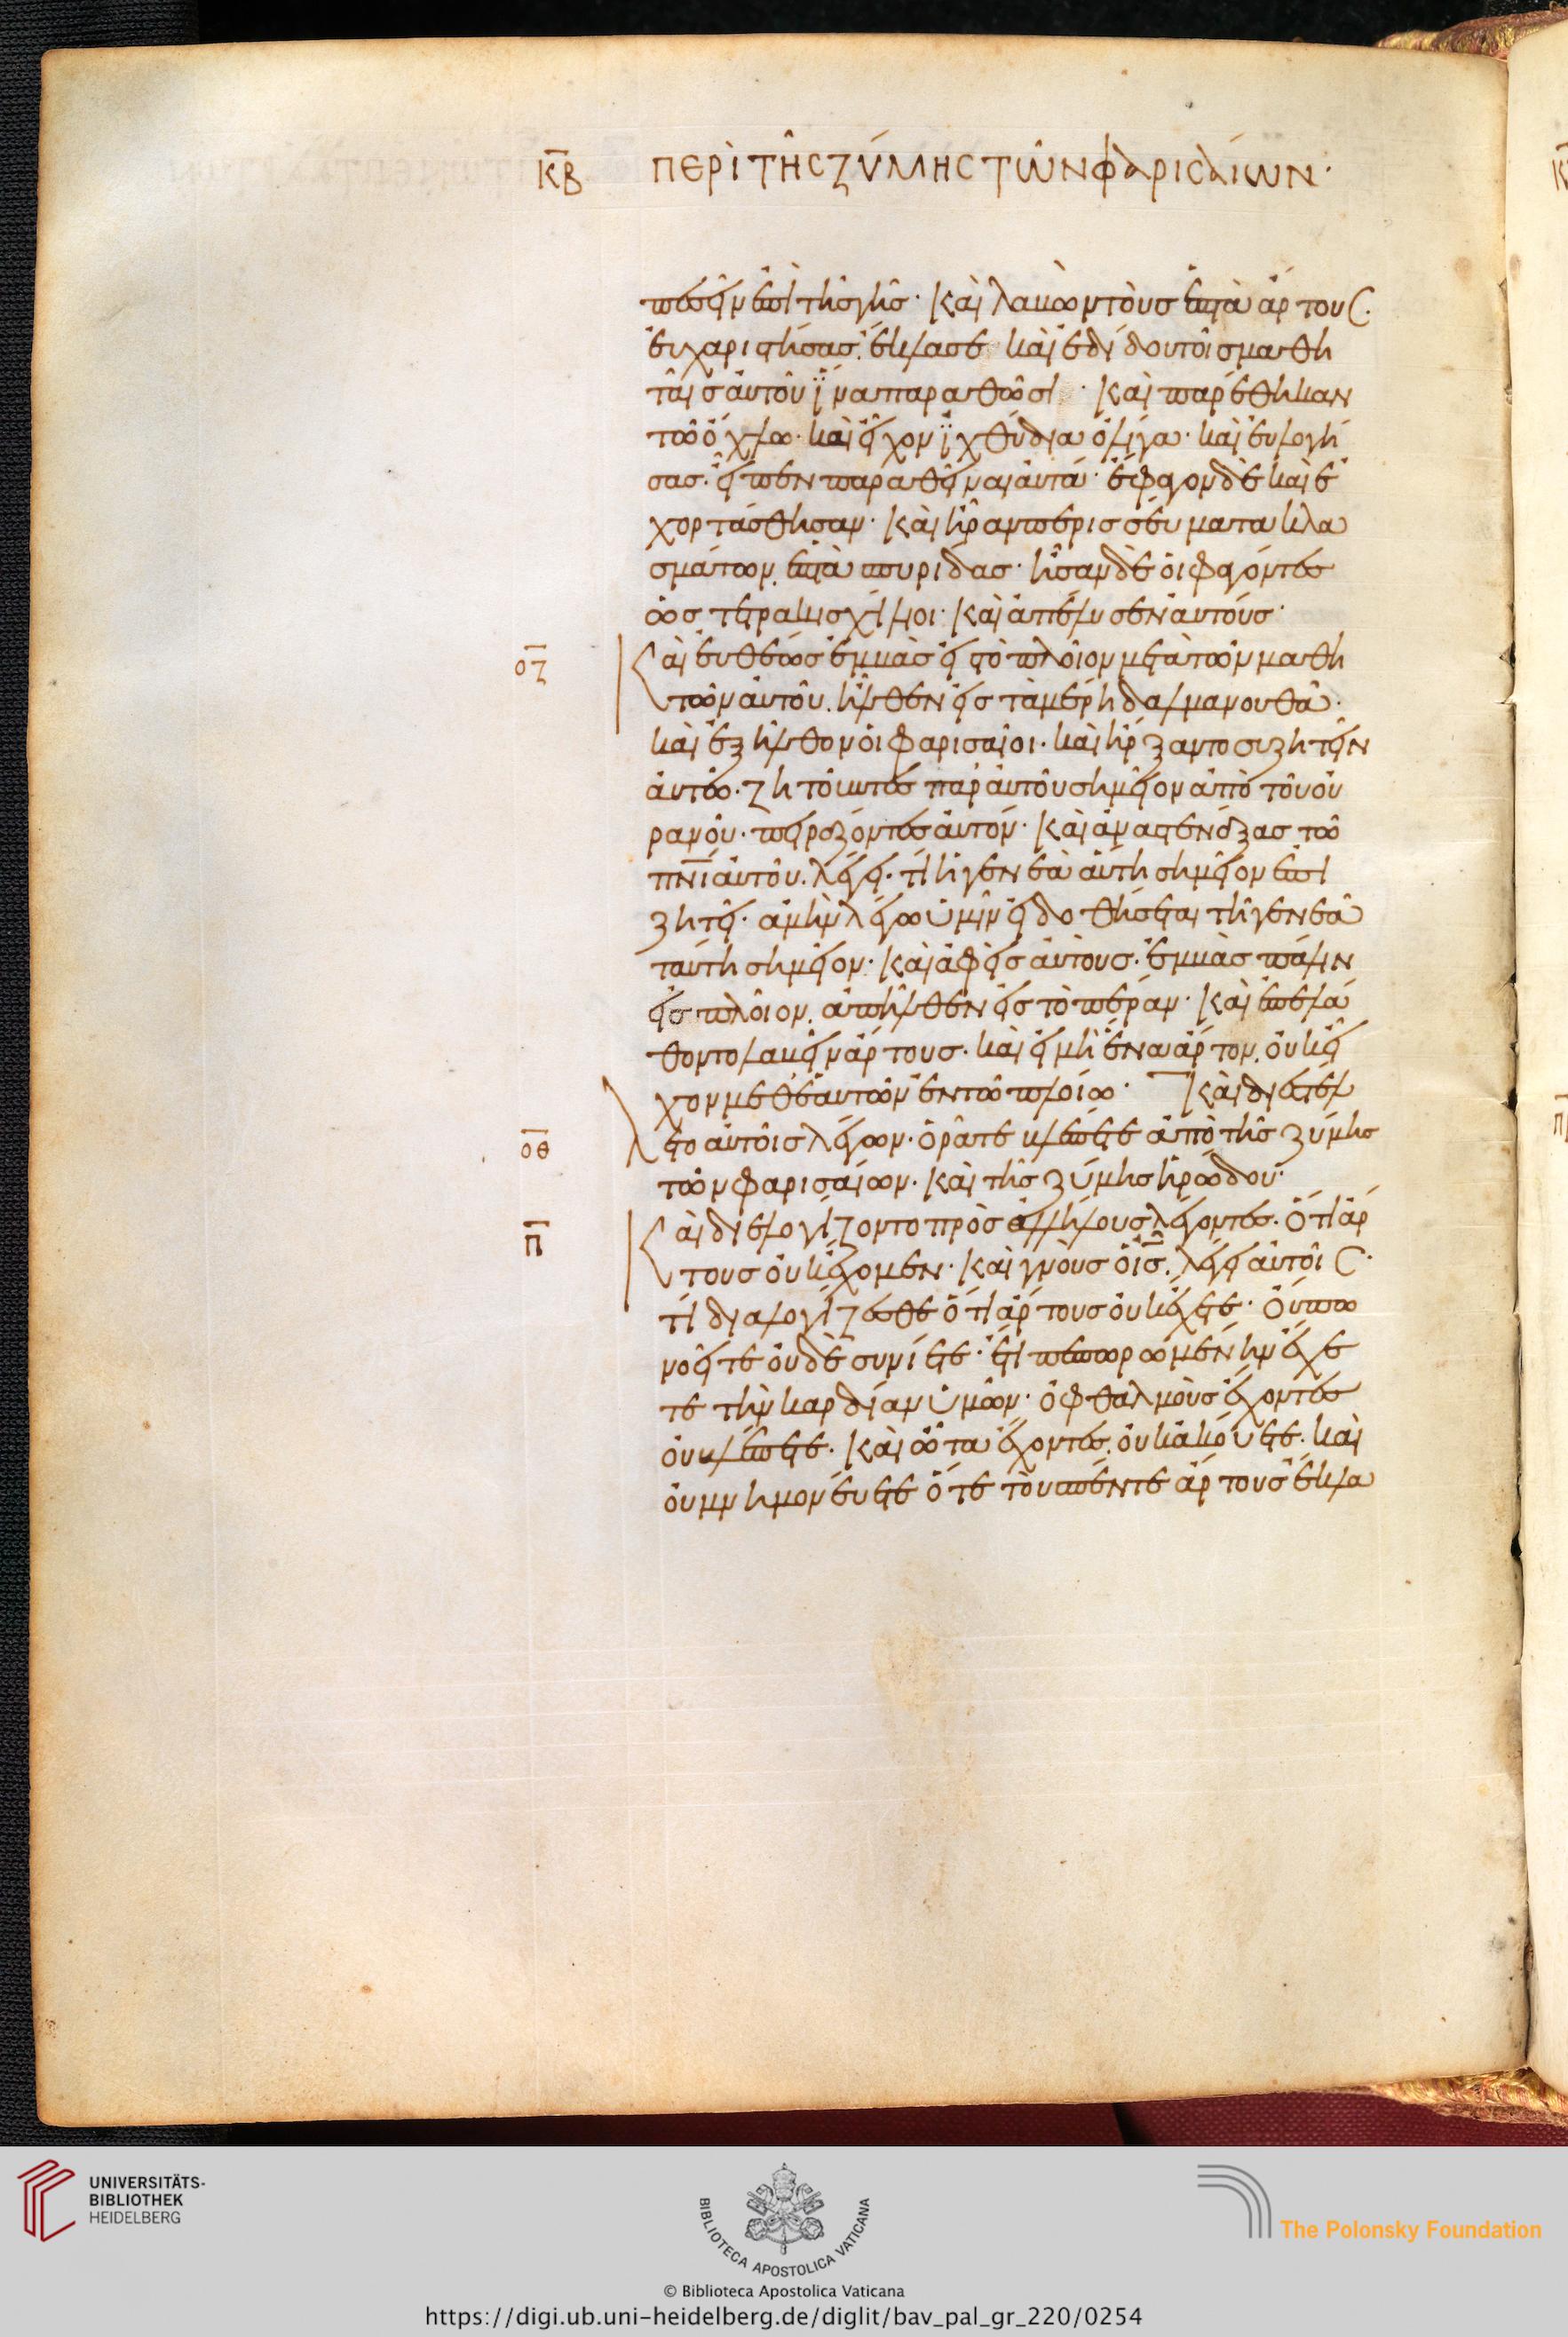 κβ ΠΕΡΙ ΤΗΣ ΖΥΜΗΣ ΤΩΝ ΦΑΡΙΣΑΙΩΝ·
πεσεῖν ἐπὶ τῆς γῆς· Καὶ λαβὼν τοὺς ἑπτὰ ἄρτους·
εὐχαριστήσας. ἔκλασε καὶ ἐδίδου τοῖς μαθη
ταῖς αὐτοῦ ἵνα παραθῶσι · Καὶ παρέθηκαν
τῶ ὄχλω· καὶ εἶχον ἰχθύδια ὀλίγα· καὶ εὐλογή
σας· εἶπεν παραθεῖναι αὐτά· ἔφαγον δὲ καὶ ἐ
χορτάσθησαν· Καὶ ἦραν περισσεύματα κλα
σμάτων. ἑπτὰ σπυρίδας· ἦσαν δὲ οἱ φαγόντες
ὡς τετρακισχίλιοι· Καὶ ἀπέλυσεν αὐτούς·
οζ Καὶ εὐθέως ἐμβὰς εἰς τὸ πλοῖον μετὰ τῶν μαθη
τῶν αὐτοῦ. ἦλθεν εἰς τὰ μέρη δαλμανουθᾶ·
καὶ ἐξῆλθον οἱ φαρισαῖοι· καὶ ἤρξαντο συζητεῖν
αὐτῶ· ζητοῦντες παρ' αὐτοῦ σημεῖον ἀπὸ τοῦ οὐ
ρανοῦ· πειράζοντες αὐτόν· Καὶ ἀναστενάξας τῶ
πνι αὐτοῦ. λέγει· τί ἡ γενεὰ αὕτη σημεῖον ἐπι
ζητεῖ· ἀμὴν λέγω ὑμῖν εἰ δοθήσεται τῆ γενεᾶ
ταύτη σημεῖον· Καὶ ἀφεὶς αὐτους· ἐμβὰς πάλιν
εἰς πλοῖον. ἀπῆλθεν εἰς τὸ πέραν· Καὶ ἐπελά
θοντο λαβεῖν ἄρτους· καὶ εἰ μὴ ἕνα ἄρτον. οὐκ εἶ
χον μεθ' ἑαυτῶν ἐν τῶ πλοίω· Καὶ διεστέλ
οθ λετο αὐτοῖς λέγων· ὁρᾶτε βλέπετε ἀπὸ τῆς ζύμης
τῶν φαρισαίων· Καὶ τῆς ζύμης ἡρώδου·
π Καὶ διελογίζοντο πρὸς ἀλλήλους λέγοντες· Ὅτι ἄρ
τους οὐκ ἔχομεν· Καὶ γνοὺς ὁ ις. λέγει αὐτοῖς·
τί διαλογίζεσθε ὅτι ἄρτους οὐκ ἔχετε· Οὔπω
νοεῖτε οὐδὲ συνίετε· ἔτι πεπωρωμένην ἔχε
τε τὴν καρδίαν ὑμῶν· ὀφθαλμοὺς ἔχοντες
οὐ βλέπετε· Καὶ ὦτα ἔχοντες. οὐκ ἀκούετε· καὶ
οὐ μνημονεύετε ὅτε τοὺς πέντε ἄρτους ἔκλα
UNIVERSITÄTS-
BIBLIOTHEK
HEIDELBERG
BIBLIOTECA APOSTOLICA VATICANA
The Polonsky Foundation
© Biblioteca Apostolica Vaticana
https://digi.ub.uni-heidelberg.de/diglit/bav_pal_gr_220/0254